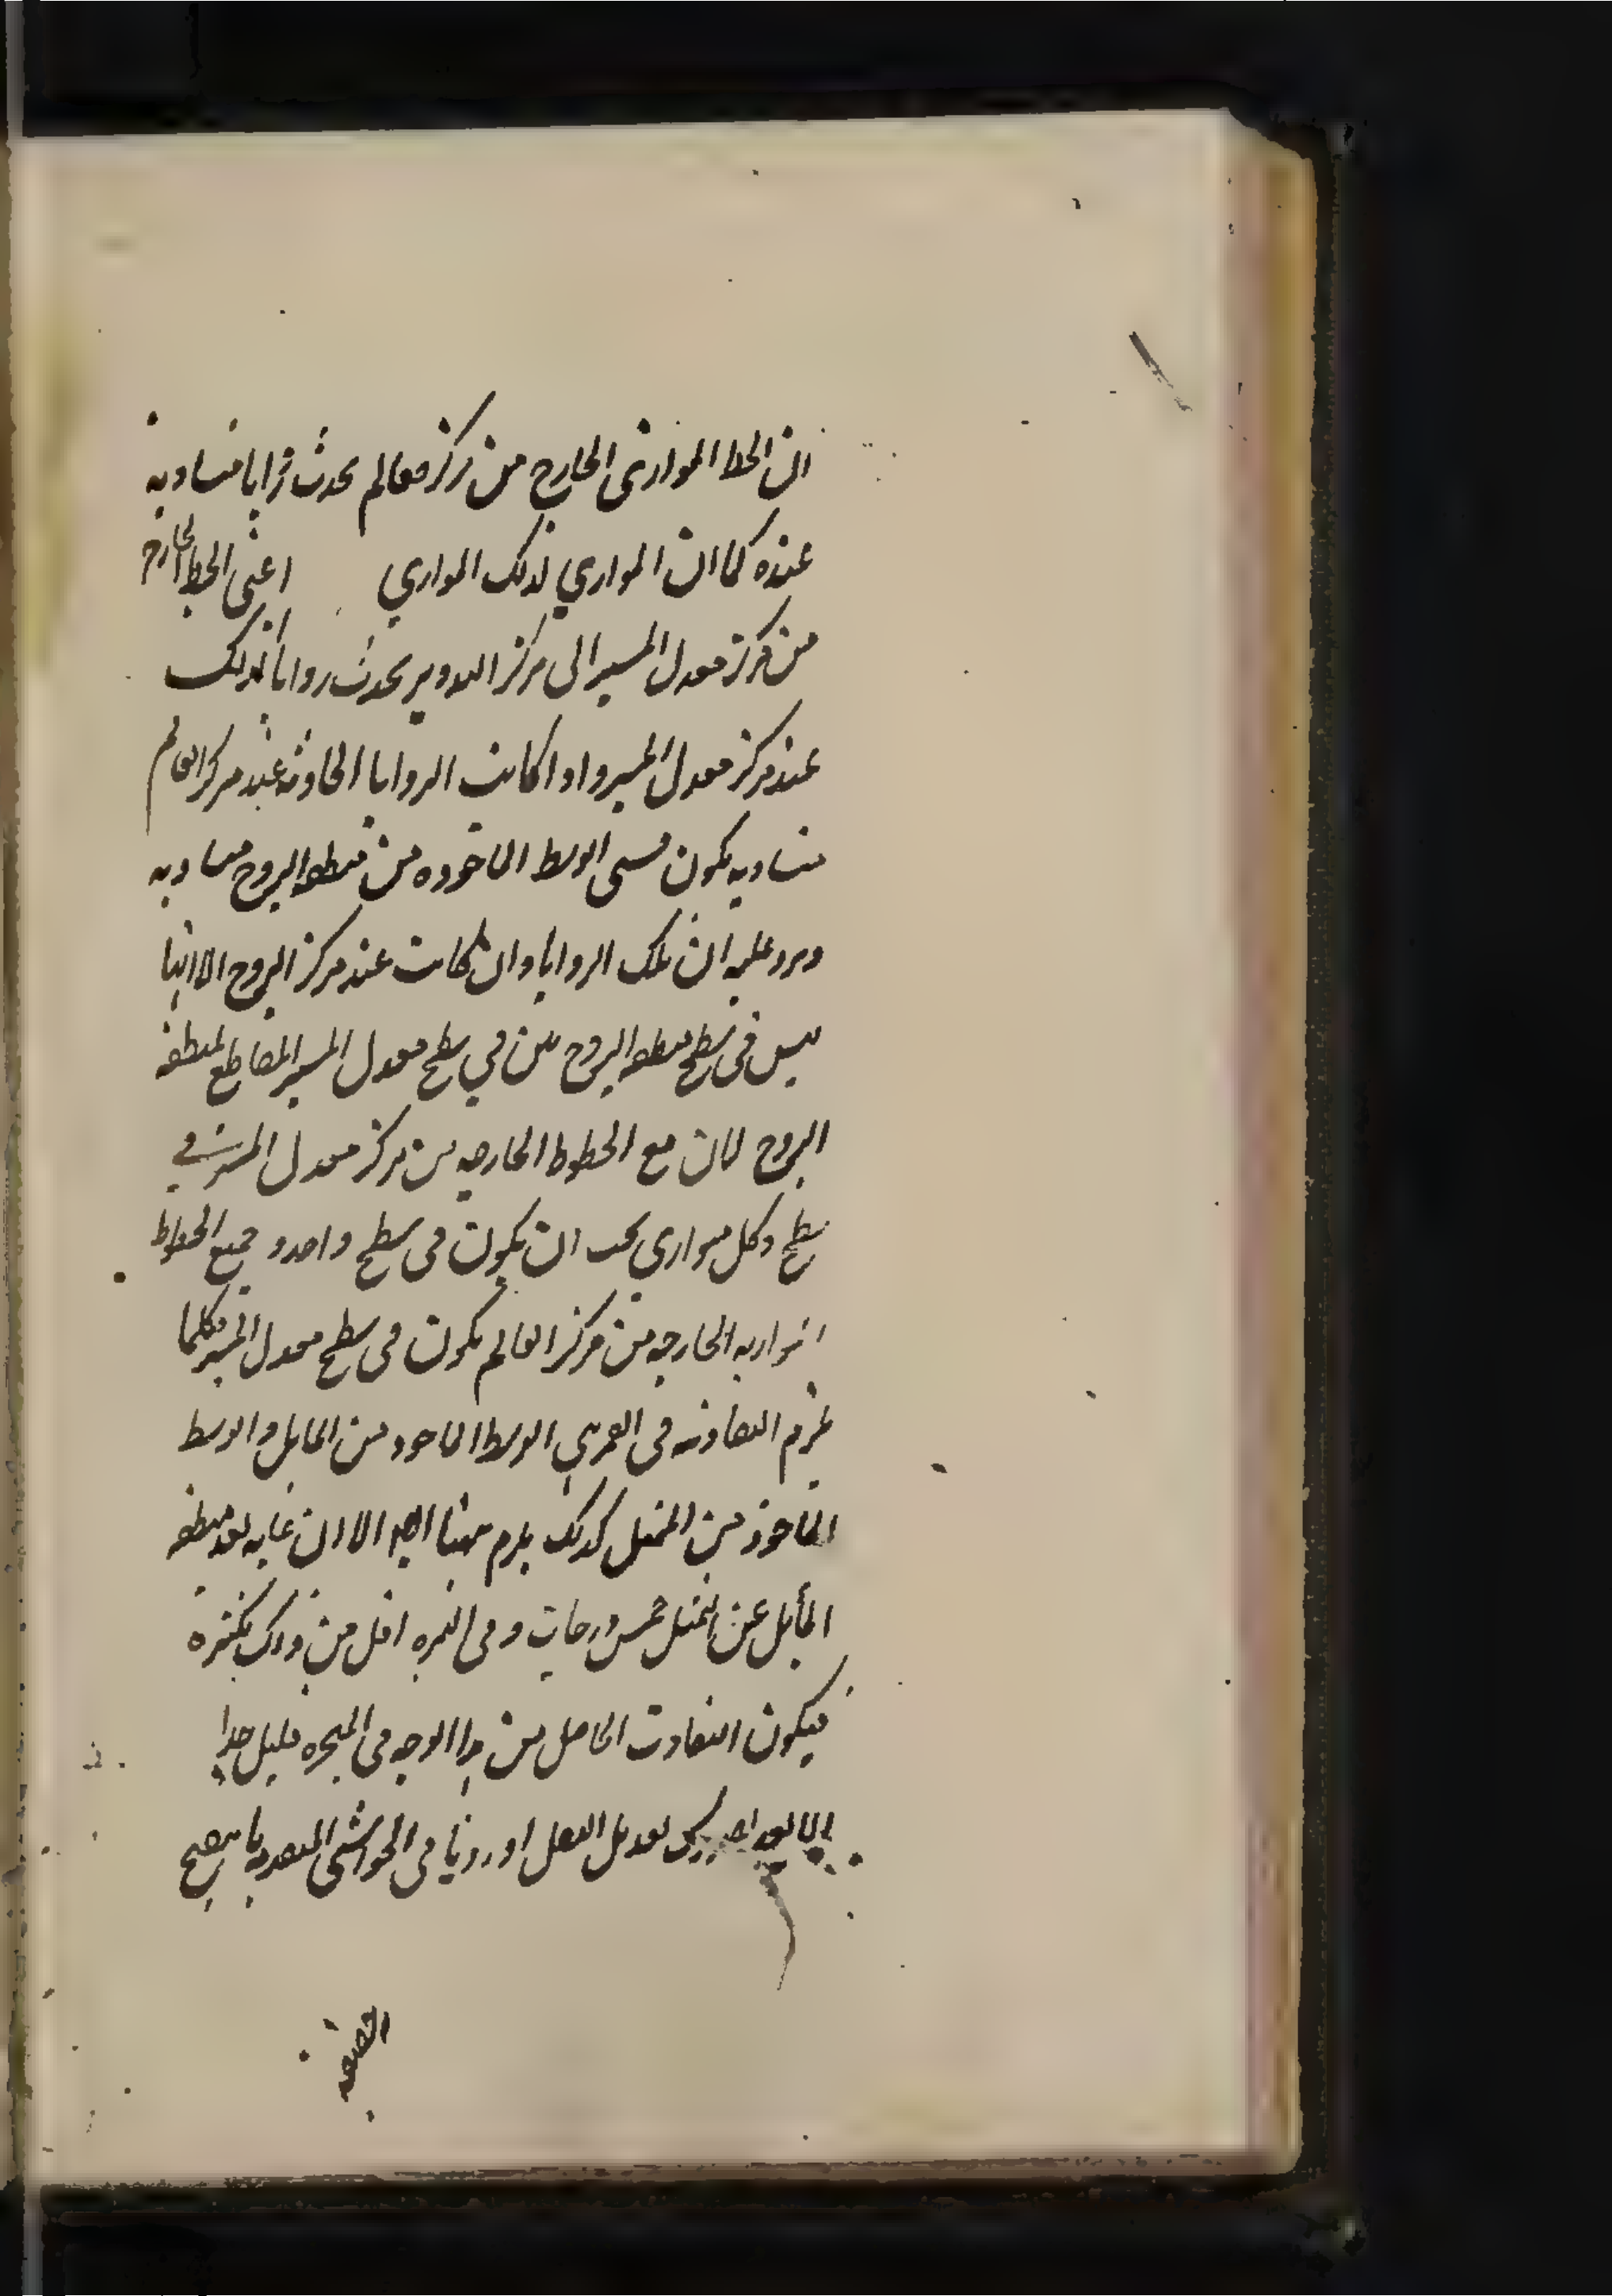 ان الخط الموازي الخارج من مركز معالم يحدث زوايا متساوية
عنده كما ان الموازي لذلك الموازي اعني الخط الخارج
من مركز معدل المسير الى مركز التدوير يحدث زوايا كذلك
عند مركز معدل المسير واذا كانت الزوايا الحادثه عند مركز العالم
متساويه يكون قسى الوسط الماخوذه من منطقه البروج متساويه
ويرد عليه ان تلك الزوايا وان كانت عند مركز البروج الا انها
ليس فى سطح منطقه البروج بل في سطح معدل المسير المقاطع لمنطقه
البروج لان مع الخطوط الخارجه من مركز معدل المسير في
سطح وكل متوازي يجب ان يكون فى سطح واحد و جميع الخطوط
المتوازيه الخارجه من مركز العالم يكون فى سطح معدل المسير فكما
يلزم التفاوت فى القمر بين الوسط الماخوذ من المايل والوسط
الماخوذ من الممثل كذلك يلزم ههنا ايضا الا ان غايه بعد منطقه
المايل عن الممثل خمس درجات و فى المتحيره اقل من ذلك بكثير
فيكون التفاوت الحاصل من هذا الوجه فى المتحيره قليل جدا
تعديل النقل اوردنا فى الحواشى المتعلقه